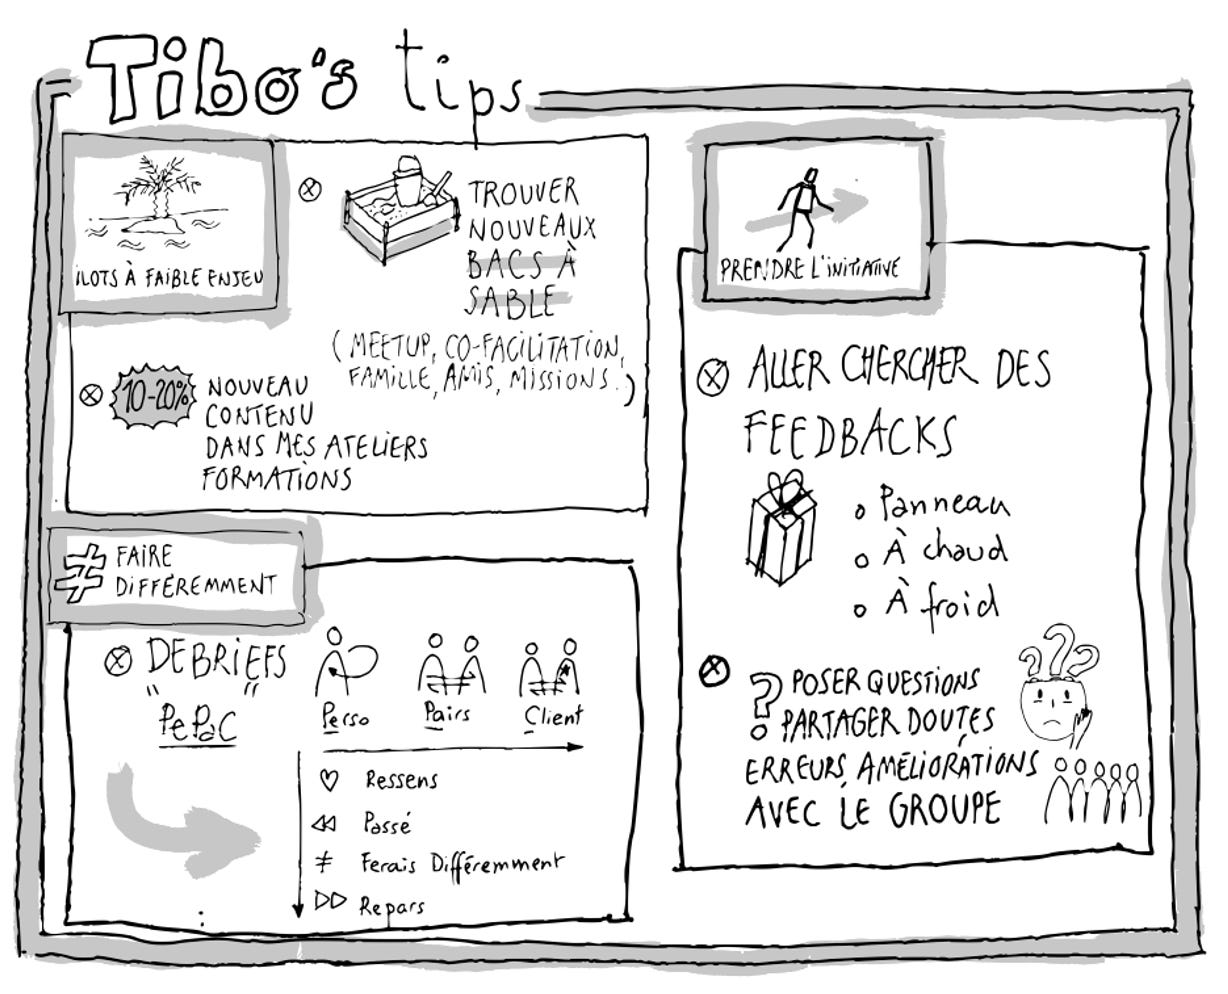 Tibo's tips
iLOTS À FAiBLE ENJEU
TROUVER
NOUVEAUX
BACS À
SABLE
(MEETUP, CO-FACiLiTATiON,
FAMiLLE, AMiS, MiSSiONS.)
10-20% NOUVEAU
CONTENU
DANS MES ATELiERS
FORMATiONS
≠ FAIRE
DiFFÉREMMENT
DEBRiEFS
"PePaC"
Perso Pairs Client
Ressens
Passé
≠ Ferais Différemment
Repars
PRENDRE L'iNiTiATiVE
ALLER CHERCHER DES
FEEDBACKS
Panneau
À chaud
À froid
? POSER QUESTiONS
PARTAGER DOUTES,
ERREURS, AMÉLiORATiONS
AVEC LE GROUPE
???